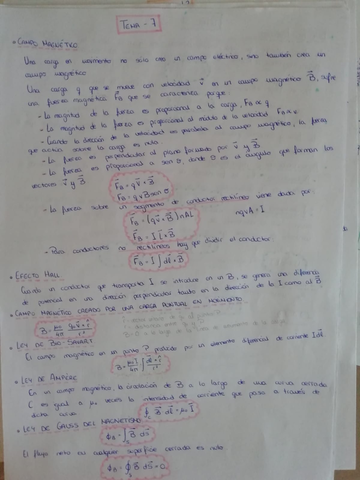 TEMA - 7
• CAMPO MAGNÉTICO
Una carga en movimiento no solo crea un campo eléctrico, sino también crea un
campo magnético
Una carga q que se mueve con velocidad v⃗ en un campo magnético B⃗, sufre
una fuerza magnética F_B que se caracteriza porque:
- La magnitud de la fuerza es proporcional a la carga, F_B ∝ q
- La magnitud de la fuerza es proporcional al módulo de la velocidad F_B ∝ v
- Cuando la dirección de la velocidad es paralela al campo magnético, la fuerza
que actúa sobre la carga es nula.
- La fuerza es perpendicular al plano formado por v⃗ y B⃗
- La fuerza es proporcional a sen θ, donde θ es el ángulo que forman los
vectores v⃗ y B⃗
F⃗_B = q v⃗ × B⃗
F_B = q v B sen θ
- La fuerza sobre un segmento de conductor rectilíneo viene dado por:
F⃗_B = (q v⃗ × B⃗) n A L
nqvA = I
F⃗_B = I l⃗ × B⃗
- Para conductores no rectilíneos hay que dividir el conductor
F⃗_B = I ∫ dl⃗ × B⃗
• EFECTO HALL
Cuando un conductor que transporta I se introduce en un B⃗, se genera una diferencia
de potencial en una dirección perpendicular tanto en la dirección de la I como al B⃗
• CAMPO MAGNÉTICO CREADO POR UNA CARGA PUNTUAL EN MOVIMIENTO
• LEY DE BIO-SAVART
El campo magnético en un punto P producido por un elemento diferencial de corriente Idl⃗
• LEY DE AMPÈRE
En un campo magnético, la circulación de B⃗ a lo largo de una curva cerrada
C es igual a μ₀ veces la intensidad de corriente que pasa a través de
dicha curva
∮ B⃗ dl⃗ = μ₀ I
• LEY DE GAUSS DEL MAGNETISMO
ϕ_B = ∫ B⃗ ds⃗
El flujo neto en cualquier superficie cerrada es nulo
ϕ_B = ∮ B⃗ ds⃗ = 0